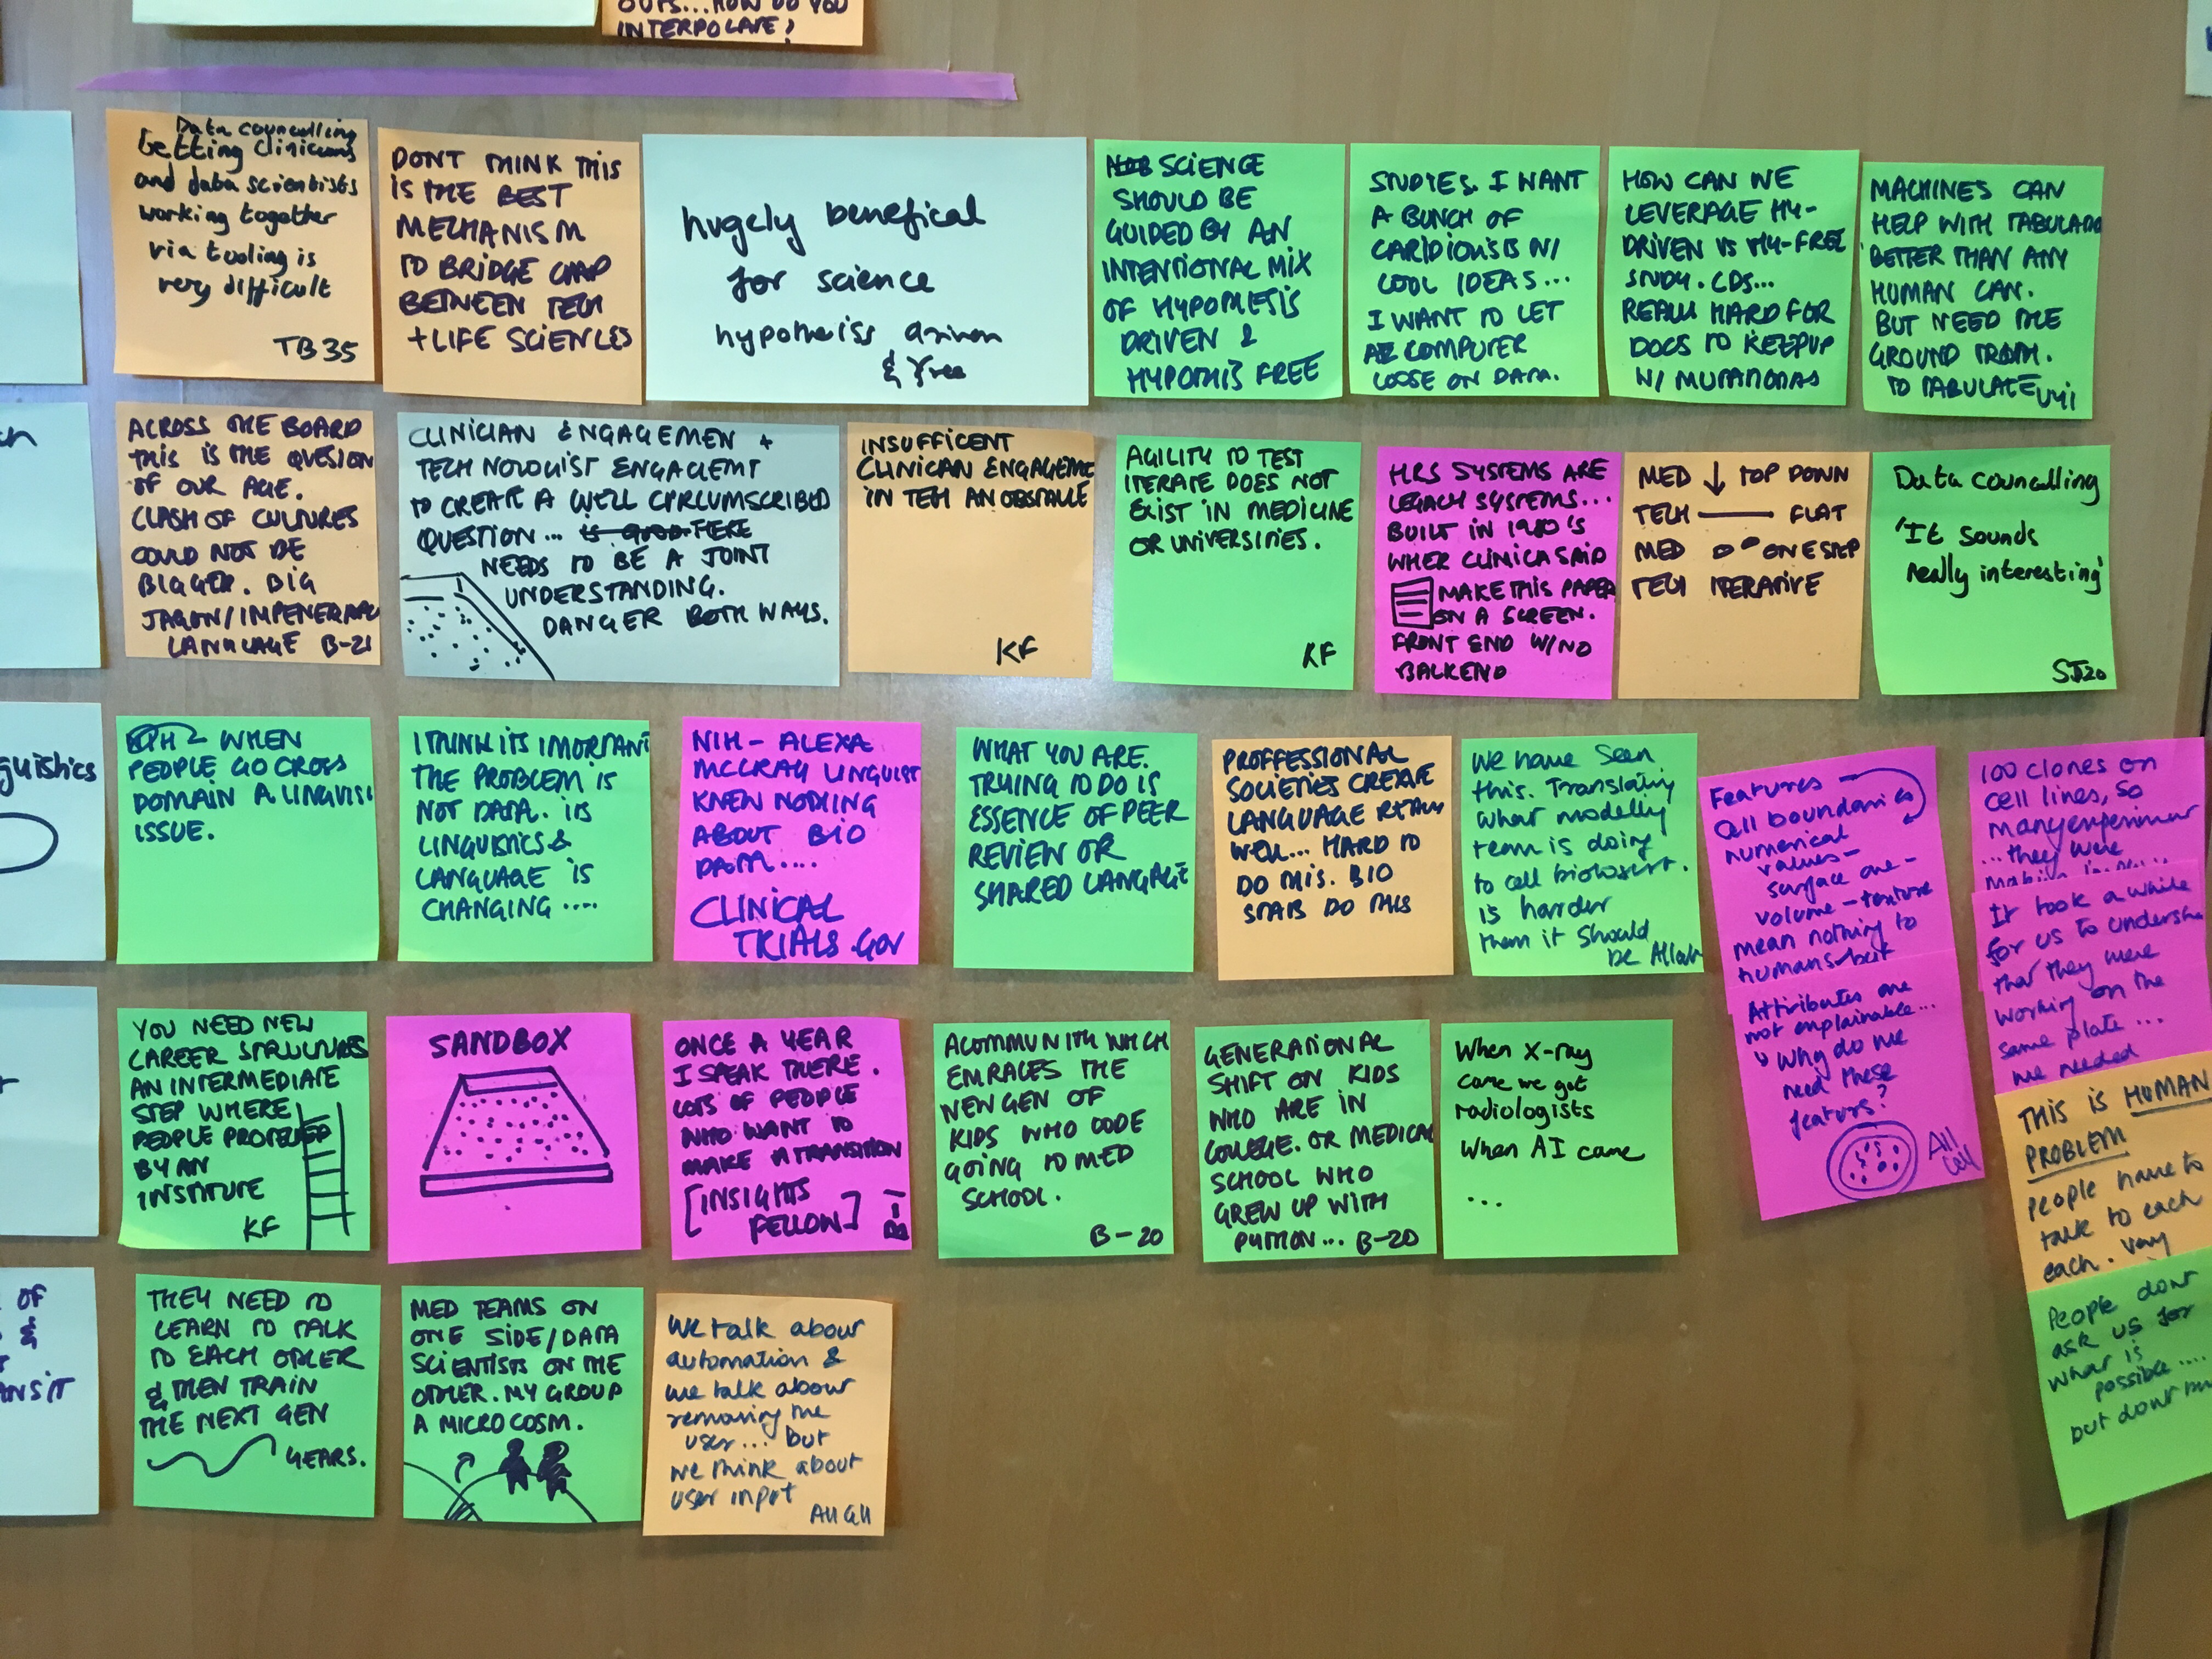 OUTS...HOW DO YOU
INTERPOLATE?
Data councilling
Getting Clinicians
and data scientists
working together
via tooling is
very difficult
TB35
DONT THINK THIS
IS THE BEST
MECHANISM
TO BRIDGE GAP
BETWEEN TECH
+ LIFE SCIENCES
hugely benefical
for science
hypotheiss driven
& free
SCIENCE
SHOULD BE
GUIDED BY AN
INTENTIONAL MIX
OF HYPOTHETIS
DRIVEN &
HYPOTHIS FREE
STUDIES. I WANT
A BUNCH OF
CARIDIOLISTS W/
COOL IDEAS...
I WANT TO LET
A COMPUTER
LOOSE ON DATA.
HOW CAN WE
LEVERAGE HY-
DRIVEN VS HY-FREE
STUDY. CDS...
REALLY HARD FOR
DOCS TO KEEPUP
W/ MUTATIONAS
MACHINES CAN
HELP WITH TABULATION
BETTER THAN ANY
HUMAN CAN.
BUT NEED THE
GROUND TRUTH.
TO TABULATE
ACROSS THE BOARD
THIS IS THE QUESION
OF OUR AGE.
CLASH OF CULTURES
COULD NOT BE
BIGGER. BIG
JARGON/IMPENERABLE
LANGUAGE B-21
CLINICIAN ENGAGEMEN +
TECHNOLOGIST ENGAGEMT
TO CREATE A WELL CIRCUMSCRIBED
QUESTION... IS GOOD. THERE
NEEDS TO BE A JOINT
UNDERSTANDING.
DANGER BOTH WAYS.
INSUFFICENT
CLINICAN ENGAGEME
IN TEH AN OBSTACLE
KF
AGILITY TO TEST
ITERATE DOES NOT
EXIST IN MEDICINE
OR UNIVERSITIES.
KF
HRS SYSTEMS ARE
LEGACY SYSTEMS...
BUILT IN 1980'S
WHER CLINICA SAID
MAKE THIS PAPER
ON A SCREEN.
FRONT END W/NO
BACKEND
MED ↓ TOP DOWN
TECH — FLAT
MED ONE STEP
TECH ITERATIVE
Data councilling
'It sounds
really interesting'
SJ20
guistics
WHEN
PEOPLE GO CROSS
DOMAIN A LINGUIST
ISSUE.
I THINK ITS IMORTANT
THE PROBLEM IS
NOT DATA. ITS
LINGUISTICS &
LANGUAGE IS
CHANGING ....
NIH- ALEXA
MCCRAY LINGUIST
KNEW NOTHING
ABOUT BIO
DATA....
CLINICAL
TRIALS.GOV
WHAT YOU ARE.
TRYING TO DO IS
ESSENCE OF PEER
REVIEW OR
SHARED LANGAGE
PROFFESSIONAL
SOCIETIES CREATE
LANGUAGE REALLY
WELL... HARD TO
DO THIS. BIO
STATS DO THIS
We have seen
this. Translating
what modelling
team is doing
to cell biologist.
is harder
then it should
be Allan
Features
Cell boundaries
numerical
values-
surface are-
volume-texture
mean nothing to
humans-but
Attributes are
not explainable...
why do we
need these
featurs?
All
Cell
100 clones on
cell lines, so
many experiment
...they were
It took a while
for us to understa
that they were
working on the
same plate ...
we needed
THIS IS HUMAN
PROBLEM
people have to
talk to each
each. Very
People dont
ask us for
what is
possible....
but dont
YOU NEED NEW
CAREER STRUCTURES
AN INTERMEDIATE
STEP WHERE
PEOPLE PROTECTED
BY AN
INSTITUTE
KF
SANDBOX
ONCE A YEAR
I SPEAK THERE.
LOTS OF PEOPLE
WHO WANT TO
MAKE A TRANSITION
[INSIGHTS
FELLOW]
B-1
A COMMUNITH WHICH
EMRACES THE
NEW GEN OF
KIDS WHO CODE
GOING TO MED
SCHOOL.
B-20
GENERATIONAL
SHIFT ON KIDS
WHO ARE IN
COLLEGE. OR MEDICAL
SCHOOL WHO
GREW UP WITH
PYTHON... B-20
When X-ray
came we got
radiologists
When AI came
...
OF
&
ANSIT
THEY NEED TO
LEARN TO TALK
TO EACH OTHER
& THEN TRAIN
THE NEXT GEN
YEARS.
MED TEAMS ON
ONE SIDE/DATA
SCIENTISTS ON THE
OTHER. MY GROUP
A MICROCOSM.
We talk about
automation &
we talk about
removing the
user... but
we think about
user input
All Cell